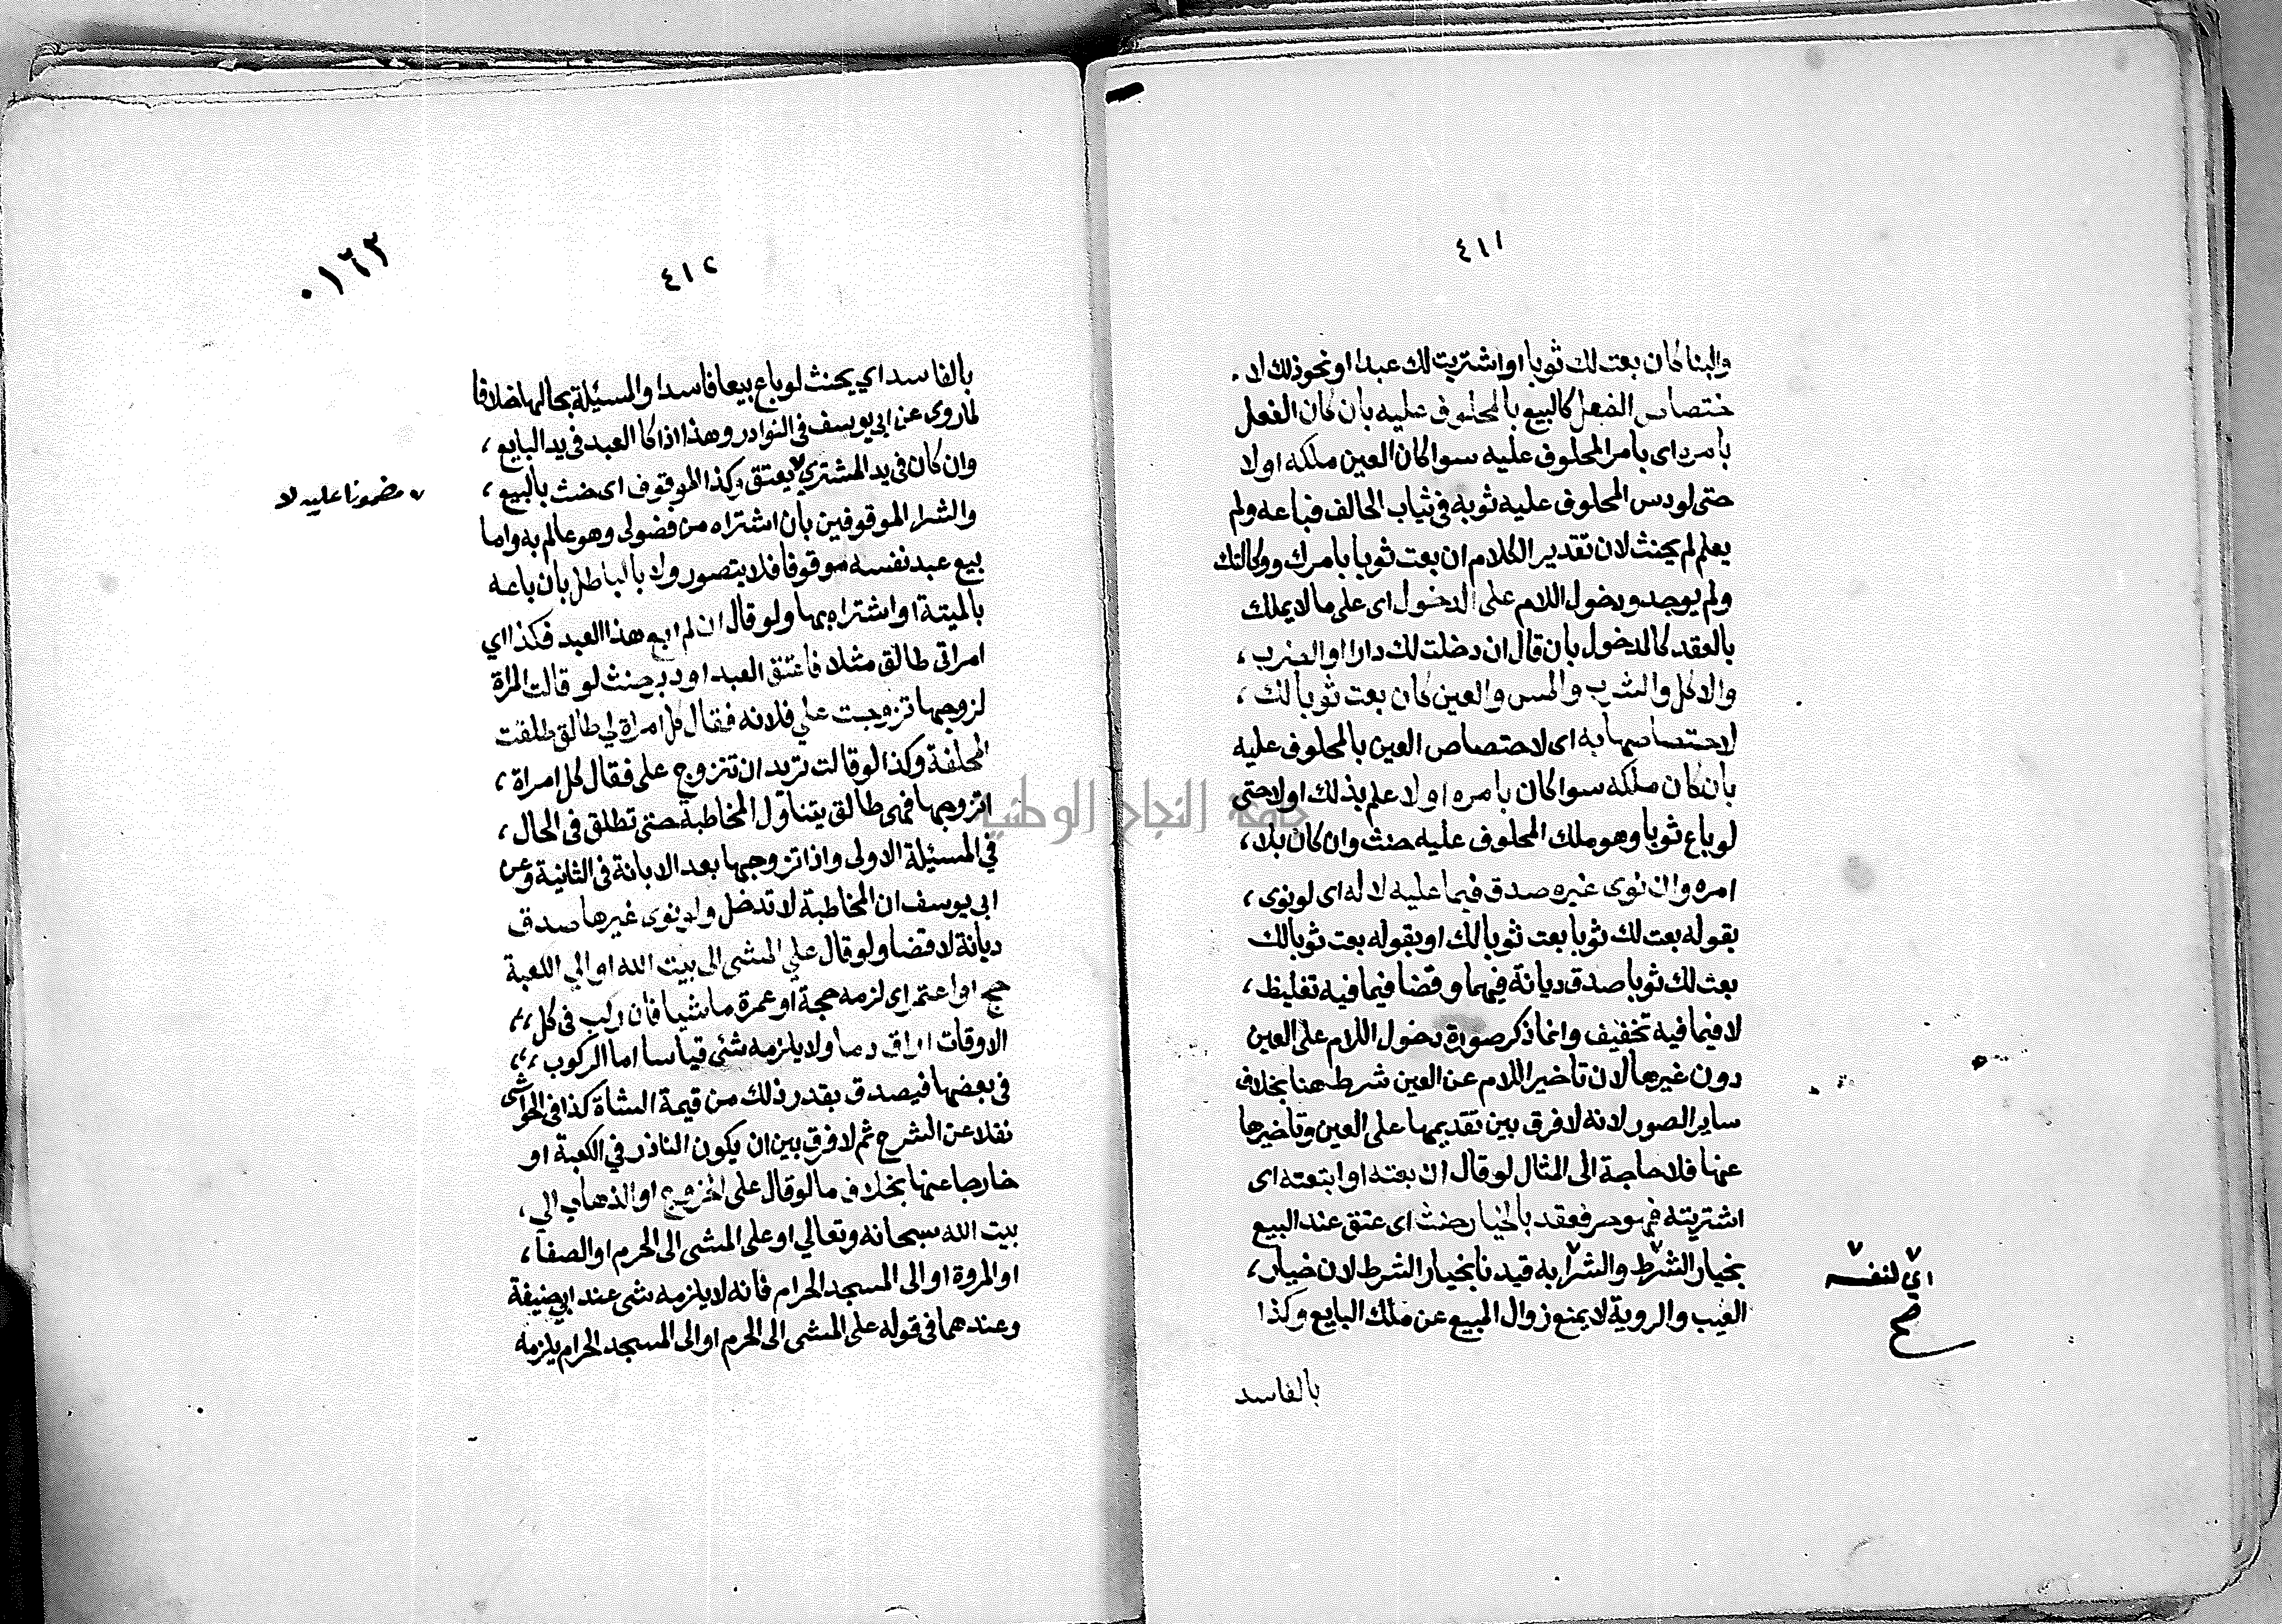 ٤١١
والبنا كان بعت لك ثوبا او اشتريت لك عبدا او نحو ذلك لا
ختصاص الفعل كالبيع بالمحلوف عليه بان كان الفعل
بامره اى بامر المحلوف عليه سوا كان العين ملكه او لا
حتى لو دس المحلوف عليه ثوبه فى ثياب الحالف فباعه ولم
يعلم لم يحنث لان تقدير الكلام ان بعت ثوبا بامرك ووكالتك
ولم يوجد ودخول اللام على الدخول اى على ما لا يملك
بالعقد كالدخول بان قال ان دخلت لك دارا او الضرب ،
والاكل والشرب والعين كان بعت ثوبا لك ،
لاختصاصها به اى لاختصاص العين بالمحلوف عليه
بان كان ملكه سوا كان بامره او لا علم بذلك او لا حتى
لو باع ثوبا وهو ملك المحلوف عليه حنث وان كان بلا ،
امره وان نوى غيره صدق فيما عليه لا له اى لو نوى ،
بقوله بعت لك ثوبا بعت ثوبا لك او بقوله بعت ثوبا لك
بعت لك ثوبا صدق ديانة فيهما وقضا فيما فيه تغليظ ،
لا فيما فيه تخفيف وانما ذكر صورة دخول اللام على العين
دون غيرها لان تاخير اللام عن العين شرط هنا بخلاف
ساير الصور لانه لا فرق بين تقديمها على العين وتاخيرها
عنها فلا حاجة الى المثال لو قال ان بعته او ابتعته اى
اشتريته فهو حر فعقد بالخيار حنث اى عتق عند البيع
بخيار الشرط والشرا به قيدنا بخيار الشرط لان خيار ،
العيب والروية لا يمنع زوال المبيع عن ملك البايع وكذا
اي لنفسه
صح
بالفاسد
٠١٦٣
٤١٢
بالفاسد اي يحنث لو باع بيعا فاسدا والمسئلة بحالها خلافا
لما روى عن ابى يوسف فى النوادر وهذا اذا كا العبد فى يد البايع ،
وان كان فى يد المشتري يعتق وكذا الموقوف اى حنث بالبيع ،
مضمونا عليه لا
والشرا الموقوفين بان اشتراه من فضولى وهو عالم به واما
بيع عبد نفسه موقوفا فلا يتصور ولا بالباطل بان باعه
بالميتة او اشتراه بها ولو قال ان لم ابع هذا العبد فكذا اي
امراتى طالق مثلا فاعتق العبد او دبر حنث لو قالت المراة
لزوجها تزوجت علي فلانه فقال كل امراة لي طالق طلقت
المحلفة وكذا لو قالت تريد ان تتزوج على فقال كل امراة ،
اتزوجها فهى طالق يتناول المخاطبة حتى تطلق فى الحال ،
في المسئلة الاولى واذا تزوجها بعد الابانة فى الثانية وعن
ابى يوسف ان المخاطبة لا تدخل ولو نوى غيرها صدق
ديانة لا قضا ولو قال علي المشى الى بيت الله او الي الكعبة
حج او اعتمر اى لزمه حجة او عمرة ماشيا فان ركب فى كل ،،
الاوقات اراق دما ولا يلزمه شئى قياسا اما الركوب ،،
فى بعضها فيصدق بقدر ذلك من قيمة الشاة كذا فى الحواشى
نقلا عن الشرح ثم لا فرق بين ان يكون الناذر في الكعبة او
خارجا عنها بخلاف ما لو قال على الخروج او الذهاب الي ،
بيت الله سبحانه وتعالي او على المشى الى الحرم او الصفا ،
او المروة او الى المسجد الحرام فانه لا يلزمه شى عند ابي حنيفة
وعندهما فى قوله على المشى الى الحرم او الى المسجد الحرام يلزمه
جامعة النجاح الوطنية